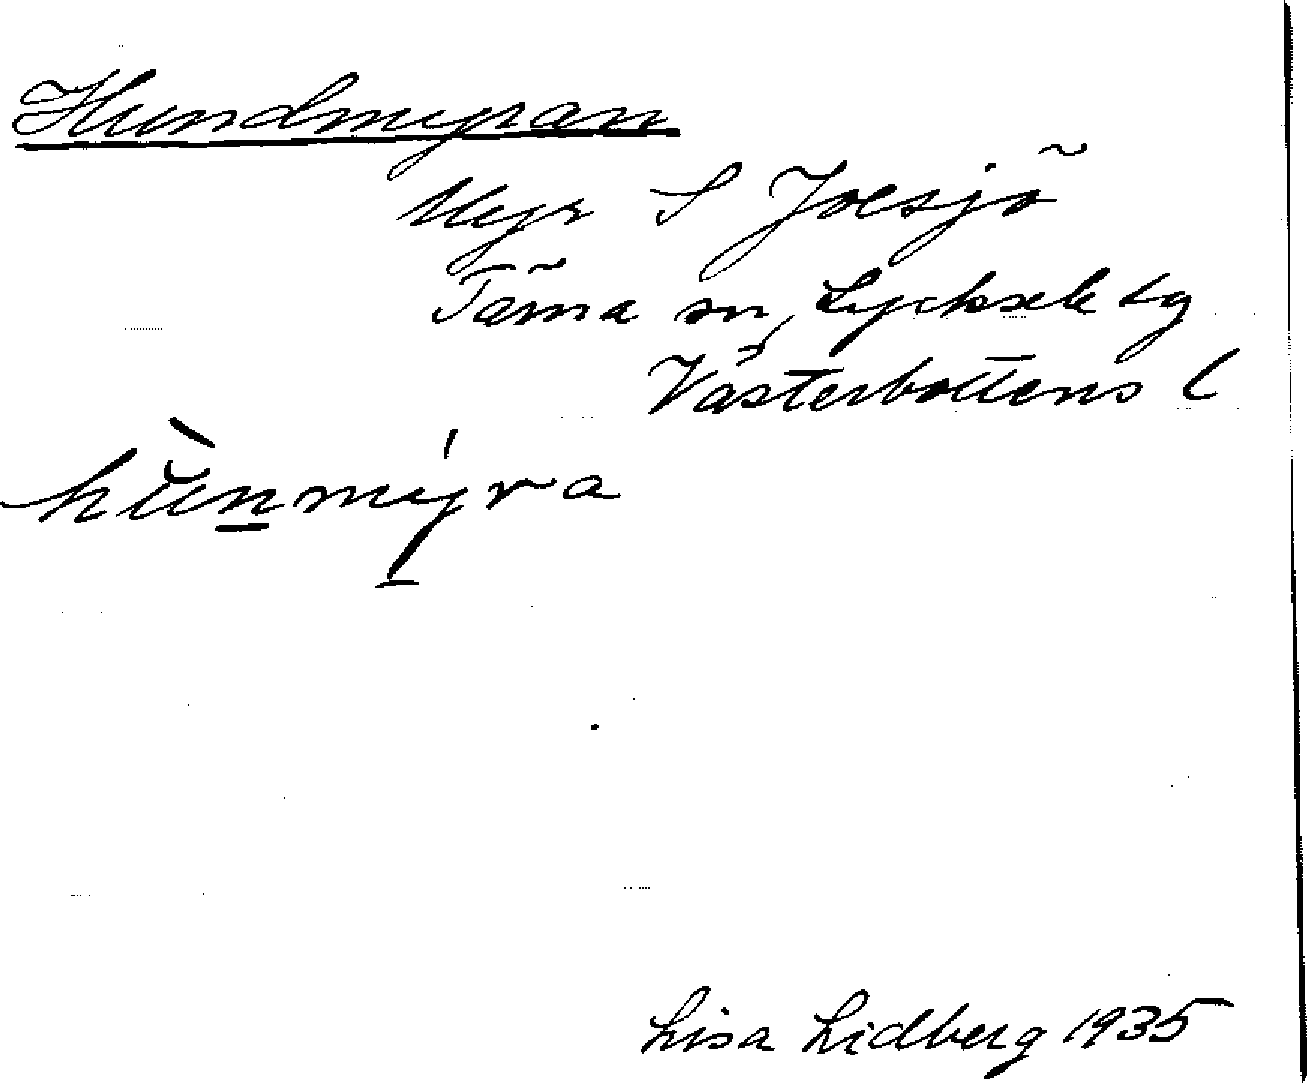 Hundmyran
Myr S Joesjö
Tärna sn, Lycksele lg
Västerbottens l
hùnmýra
Lisa Lidberg 1935